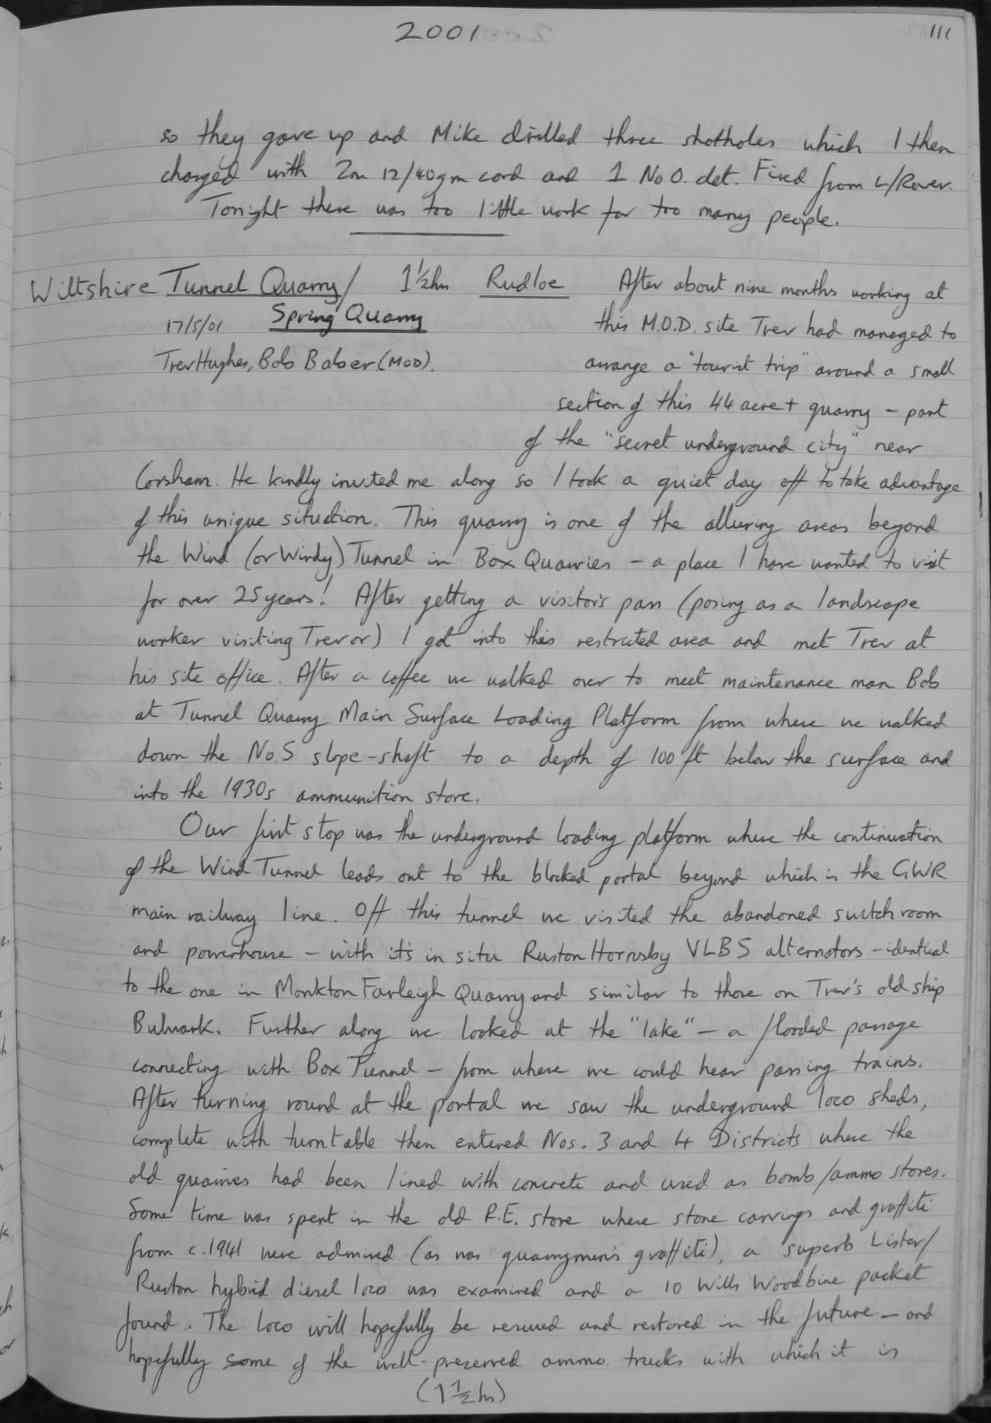 2001
111
so they gave up and Mike drilled three shotholes which I then
charged with 2m 12/40gm cord and 1 No 0. det. Fired from L/Rover.
Tonight there was too little work for too many people.
Wiltshire Tunnel Quarry/ 1½hrs Rudloe After about nine months working at
Spring Quarry
17/5/01 this M.O.D. site Trev had managed to
Trev Hughes, Bob Baber (MOD). arrange a "tourist trip" around a small
section of this 44 acre+ quarry - part
of the "secret underground city" near
Corsham. He kindly invited me along so I took a quiet day off to take advantage
of this unique situation. This quarry is one of the alluring areas beyond
the Wind (or Windy) Tunnel in Box Quarries - a place I have wanted to visit
for over 25 years! After getting a visitor's pass (posing as a landscape
worker visiting Trevor) I got into this restricted area and met Trev at
his site office. After a coffee we walked over to meet maintenance man Bob
at Tunnel Quarry Main Surface Loading Platform from where we walked
down the No.5 slope-shaft to a depth of 100 ft below the surface and
into the 1930s ammunition store.
Our first stop was the underground loading platform where the continuation
of the Wind Tunnel leads out to the blocked portal beyond which is the GWR
main railway line. Off this tunnel we visited the abandoned switch room
and powerhouse - with it's in situ Ruston Hornsby VLBS alternators - identical
to the one in Monkton Farleigh Quarry and similar to those on Trev's old ship
Bulwark. Further along we looked at the "lake" - a flooded passage
connecting with Box Tunnel - from where we could hear passing trains.
After turning round at the portal we saw the underground loco sheds,
complete with turntable then entered Nos. 3 and 4 Districts where the
old quarries had been lined with concrete and used as bomb/ammo stores.
Some time was spent in the old R.E. store where stone carvings and graffiti
from c.1941 were admired (as was quarrymen's graffiti), a superb Lister/
Ruston hybrid diesel loco was examined and a 10 Wills Woodbine packet
found. The loco will hopefully be rescued and restored in the future - and
hopefully some of the well-preserved ammo trucks with which it is
(1½hrs)